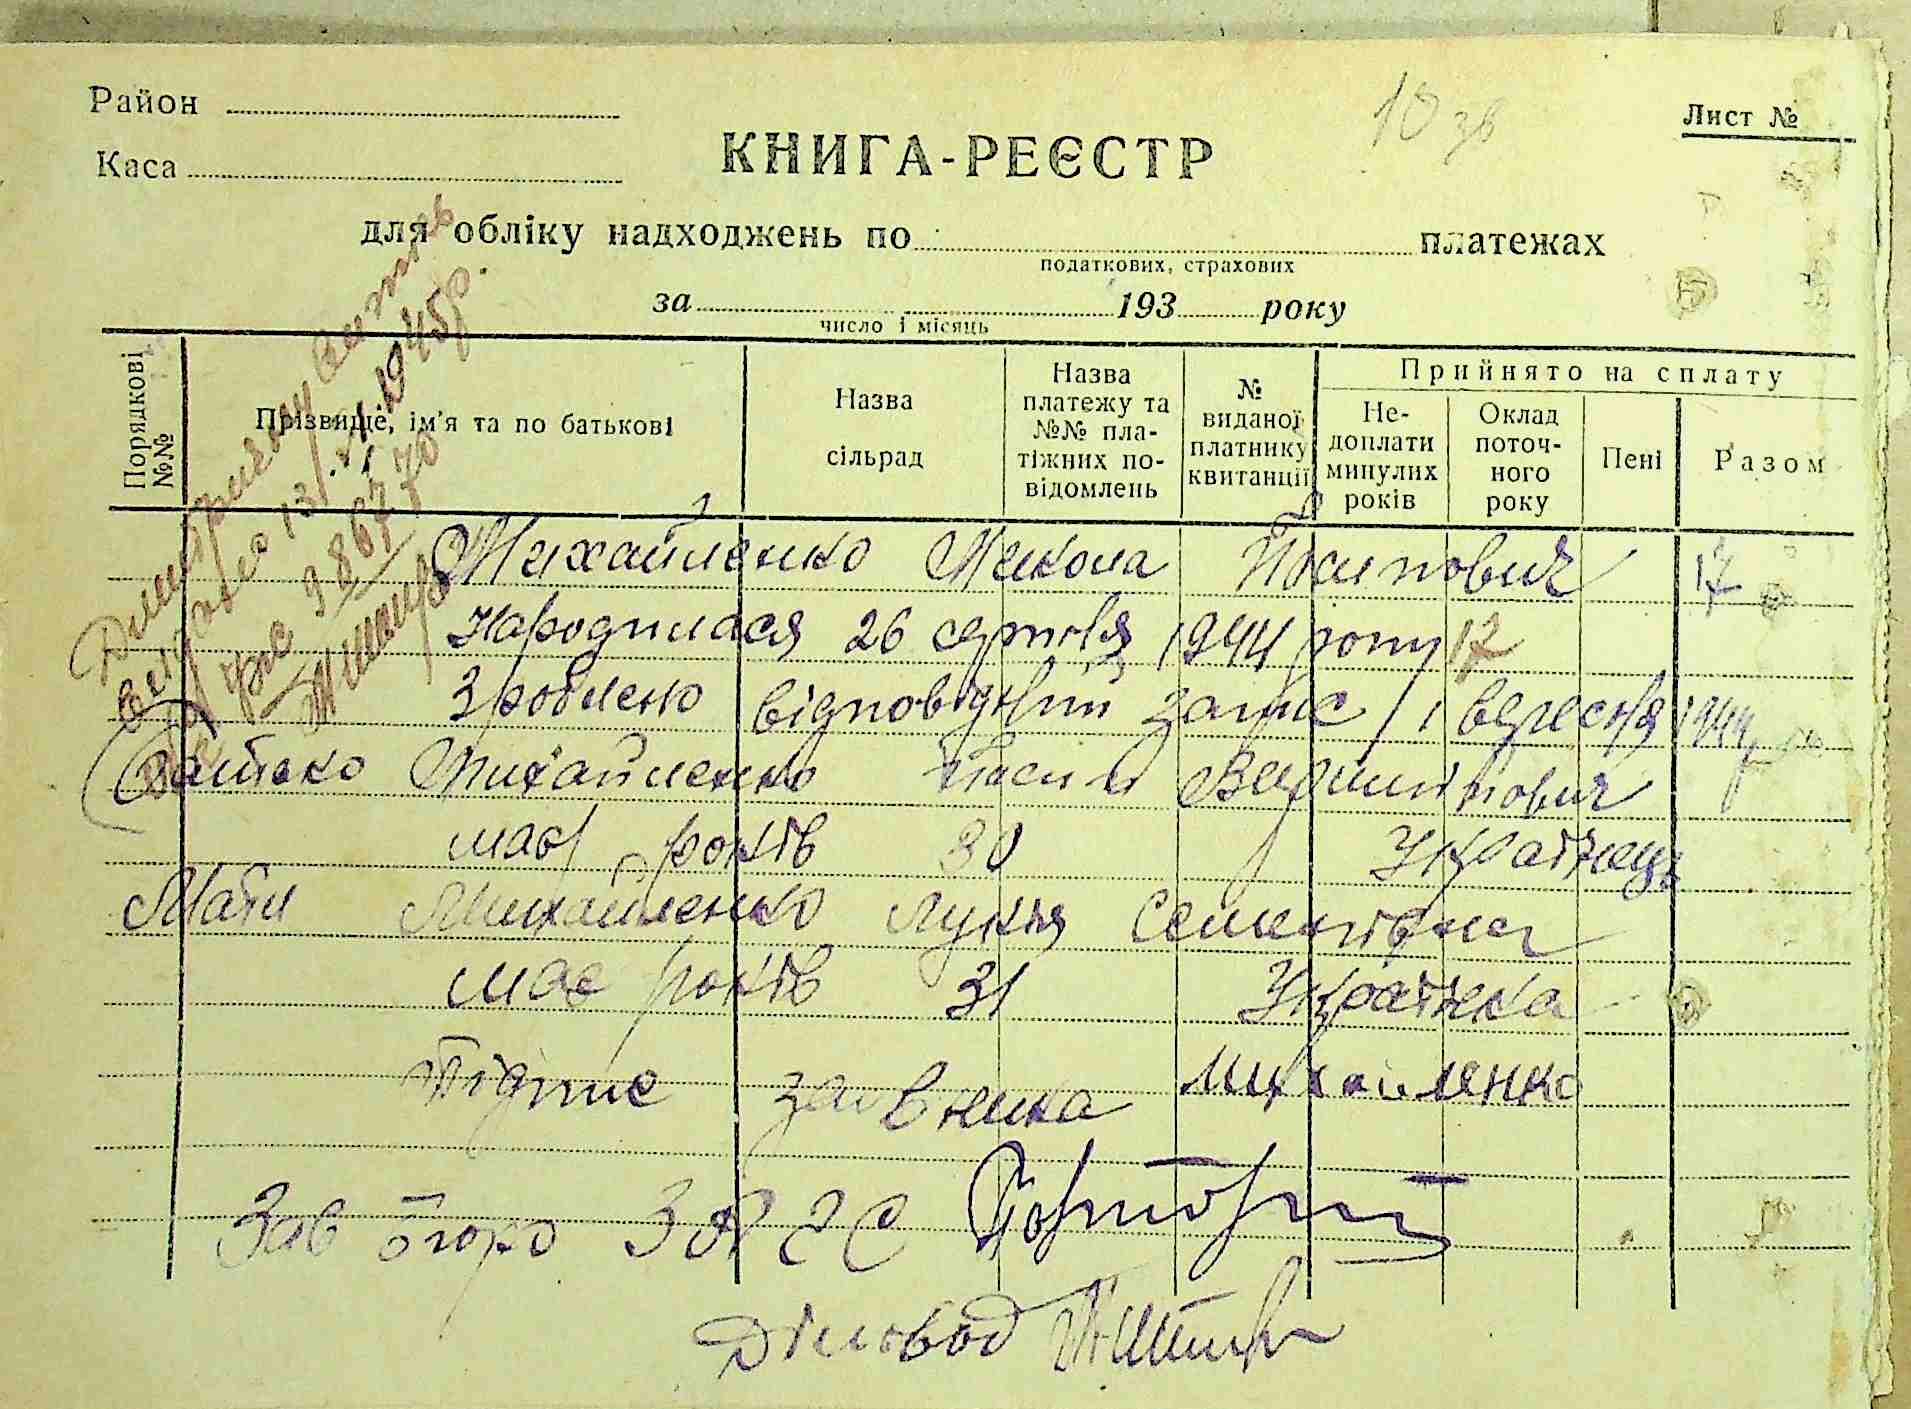 Район
Каса
10 зв
Лист №
КНИГА-РЕЄСТР
для обліку надходжень по платежах
податкових, страхових
за 193 року
число і місяць
Порядкові №№
Прізвище, ім'я та по батькові
Назва сільрад
Назва платежу та №№ пла-тіжних по-відомлень
№ виданої платнику квитанції
Прийнято на сплату
Не-доплати минулих років
Оклад поточ-ного року
Пені
Разом
13/VI.1945р.
Михайленко Микола Йосипович 17
Народилася 26 серпня 1944 року 17
Зроблено відповідний запис 1 вересня 1944
Батько Михайленко Йосип
має років 30 Українець
Мати Михайленко Лукія Семенівна
має років 31 Українка
Підпис заявника Михайленко
Зав бюро ЗАГС
Діловод